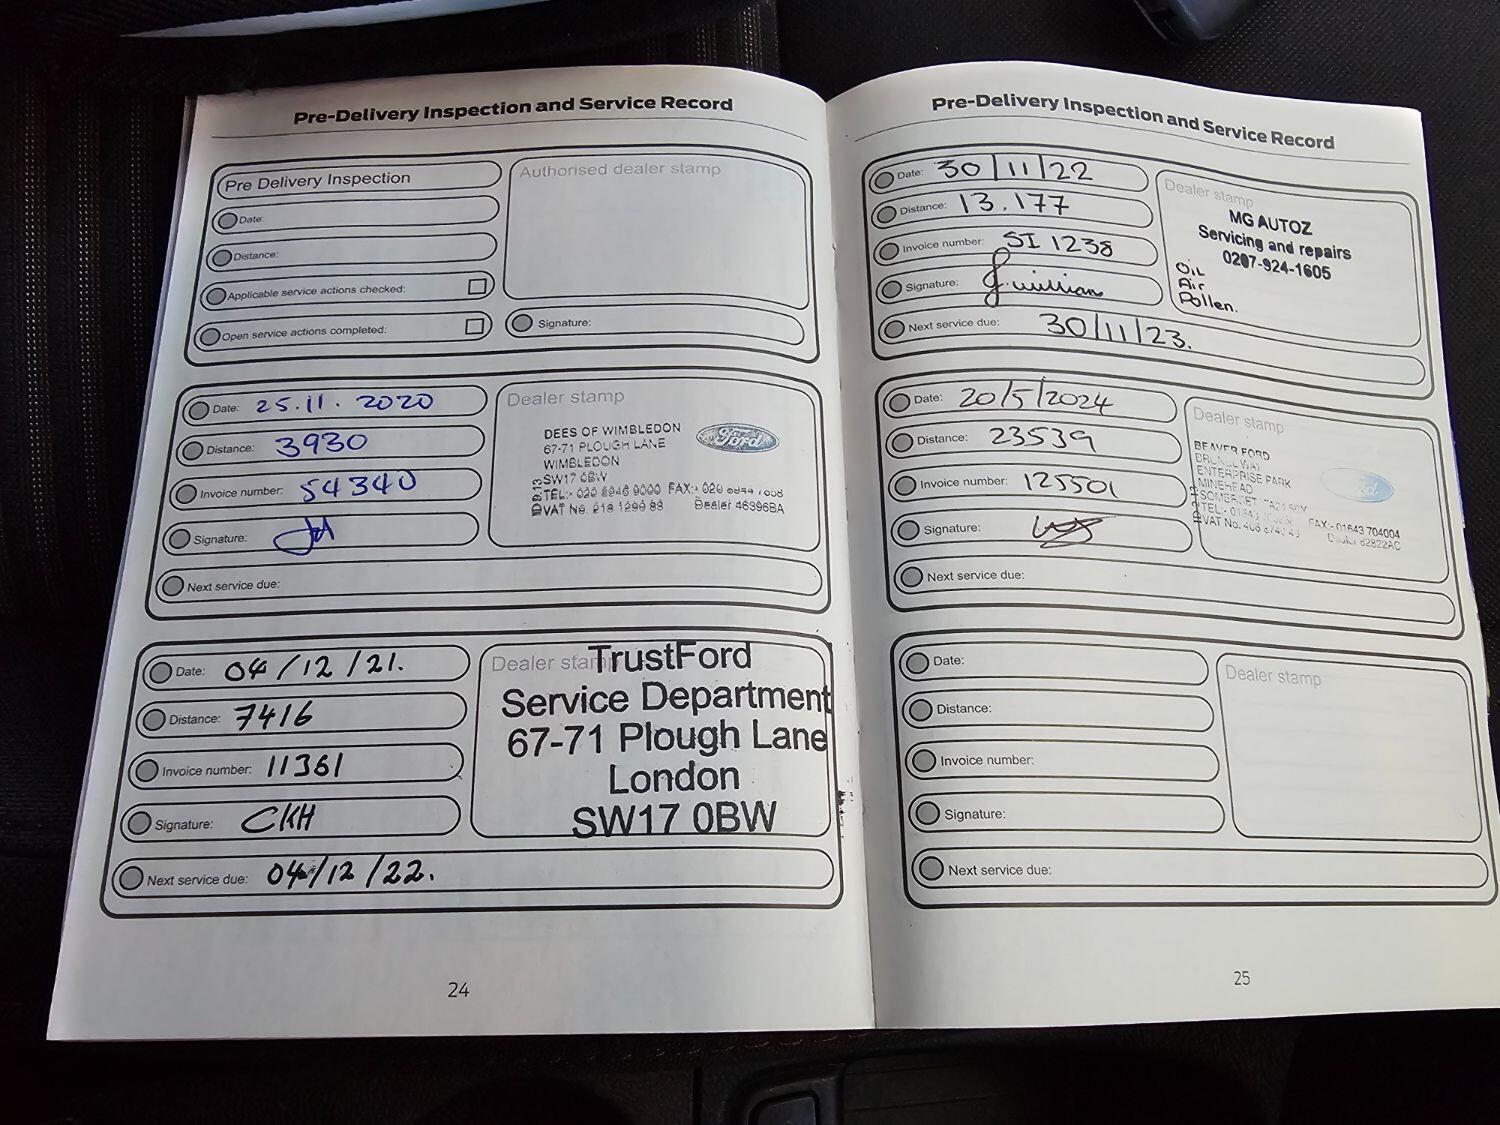 Pre-Delivery Inspection and Service Record
Pre Delivery Inspection
Date:
Distance:
Applicable service actions checked:
Open service actions completed:
Authorised dealer stamp
Signature:
Date: 25.11.2020
Distance: 3930
Invoice number: 54340
Signature:
Next service due:
Dealer stamp
DEES OF WIMBLEDON
67-71 PLOUGH LANE
WIMBLEDON
SW17 0BW
TEL:- 020 8946 9000 FAX:- 020
VAT No. 218 1290 83 Dealer 46396BA
Ford
Date: 04/12/21.
Distance: 7416
Invoice number: 11361
Signature: CKH
Next service due: 04/12/22.
Dealer stamp
TrustFord
Service Department
67-71 Plough Lane
London
SW17 0BW
24
Pre-Delivery Inspection and Service Record
Date: 30/11/22
Distance: 13.177
Invoice number: SI 1238
Signature:
Next service due: 30/11/23.
Dealer stamp
MG AUTOZ
Servicing and repairs
0207-924-1605
Oil
Air
Pollen.
Date: 20/5/2024
Distance: 23539
Invoice number: 125501
Signature:
Next service due:
Dealer stamp
BEAVER FORD
ENTERPRISE PARK
MINEHEAD
SOMERSET
TEL:- FAX:- 01643 704004
VAT No. 82822AC
Date:
Distance:
Invoice number:
Signature:
Next service due:
Dealer stamp
25